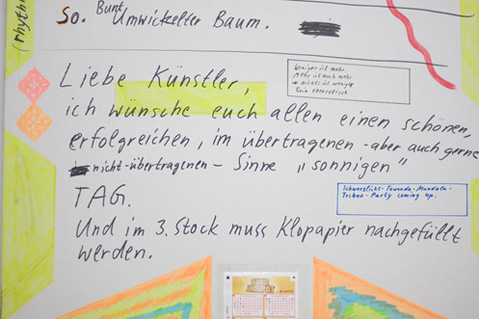 (rhythm
So. Bunt
Umwickelter Baum.
Weniger ist mehr.
Mehr ist auch mehr.
Rein theoretisch
Liebe Künstler,
ich wünsche euch allen einen schönen,
erfolgreichen, im übertragenen - aber auch gerne
nicht-übertragenen - Sinne „sonnigen"
TAG.
Schwarzlicht-Towanda-Mandala-
Techno-Party coming up.
Und im 3. Stock muss Klopapier nachgefüllt
werden.